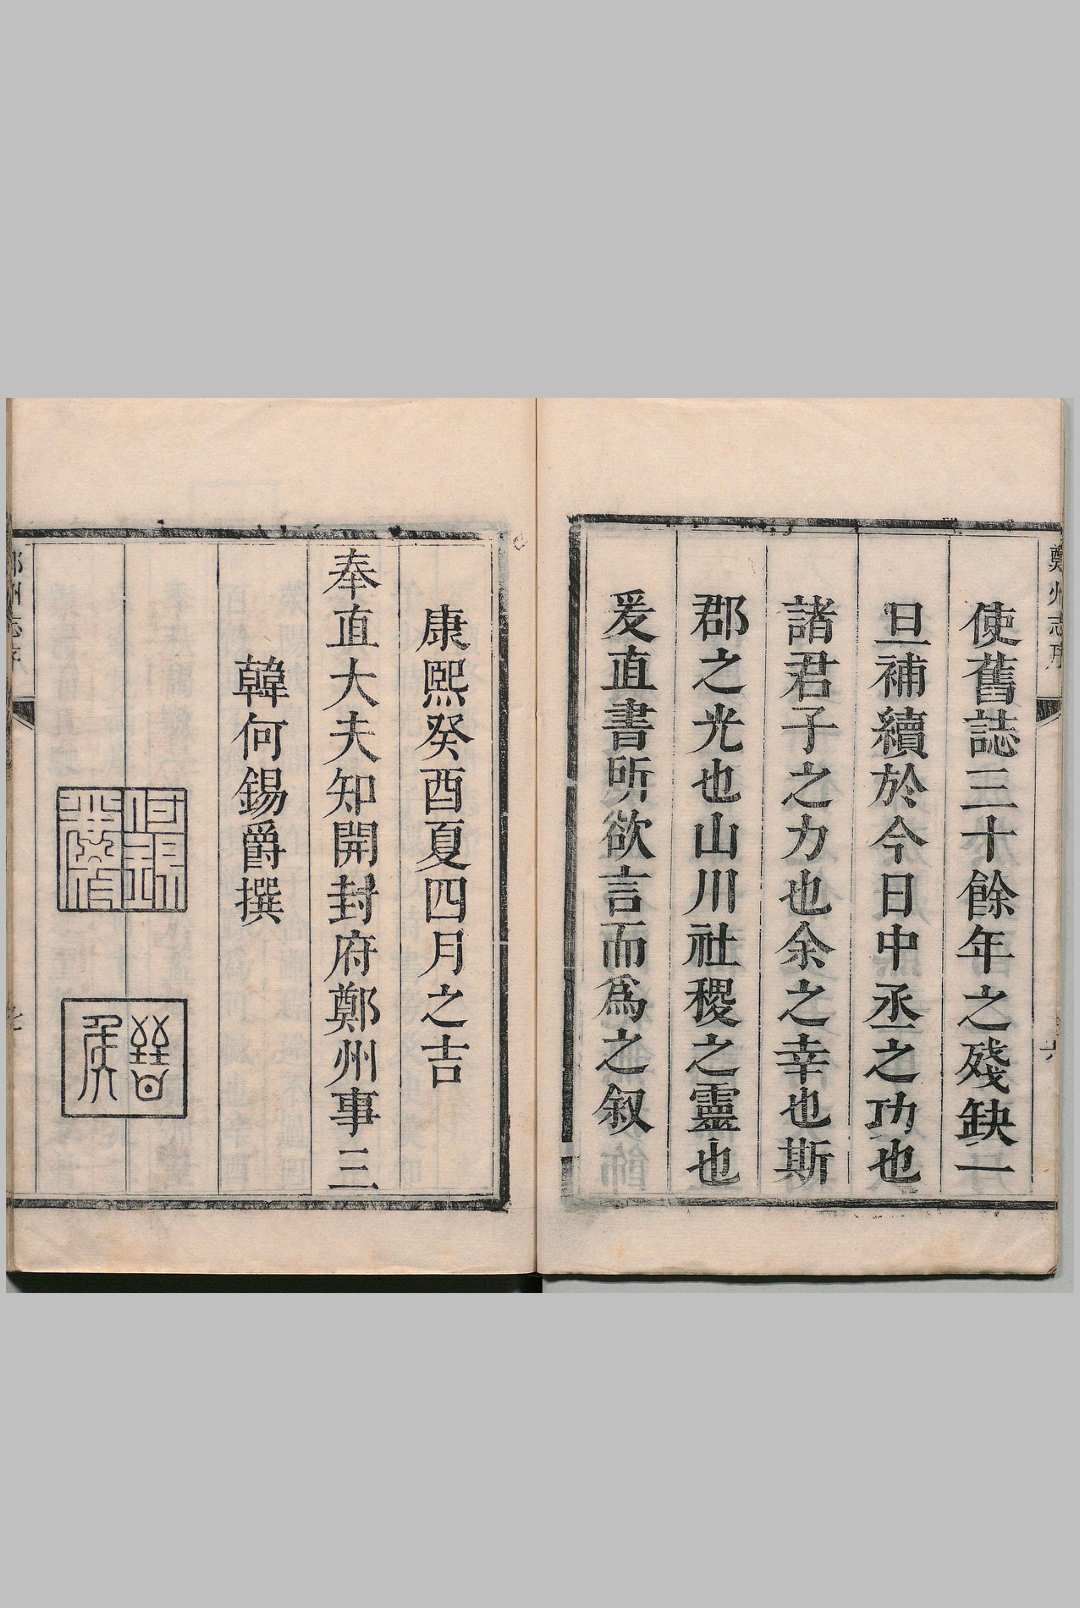 鄭州志序
六
使舊誌三十餘年之殘缺一
旦補續於今日中丞之功也
諸君子之力也余之幸也斯
郡之光也山川社稷之靈也
爰直書所欲言而為之叙
康熙癸酉夏四月之吉
奉直大夫知開封府鄭州事三
韓何錫爵撰
晉侯
鄭州志序
七